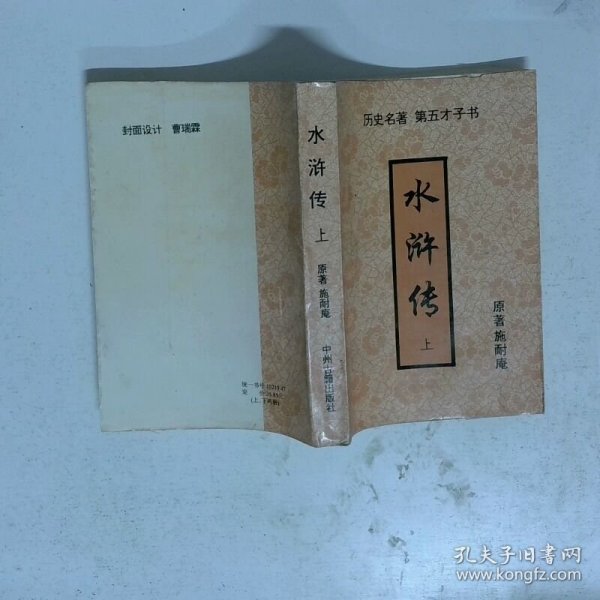 封面设计 曹瑞霖
统一书号
定
(上、下两册)
水浒传 上
原著 施耐庵
中州古籍出版社
历史名著 第五才子书
水浒传
上
原著施耐庵
孔夫子旧书网
www.kongfz.com